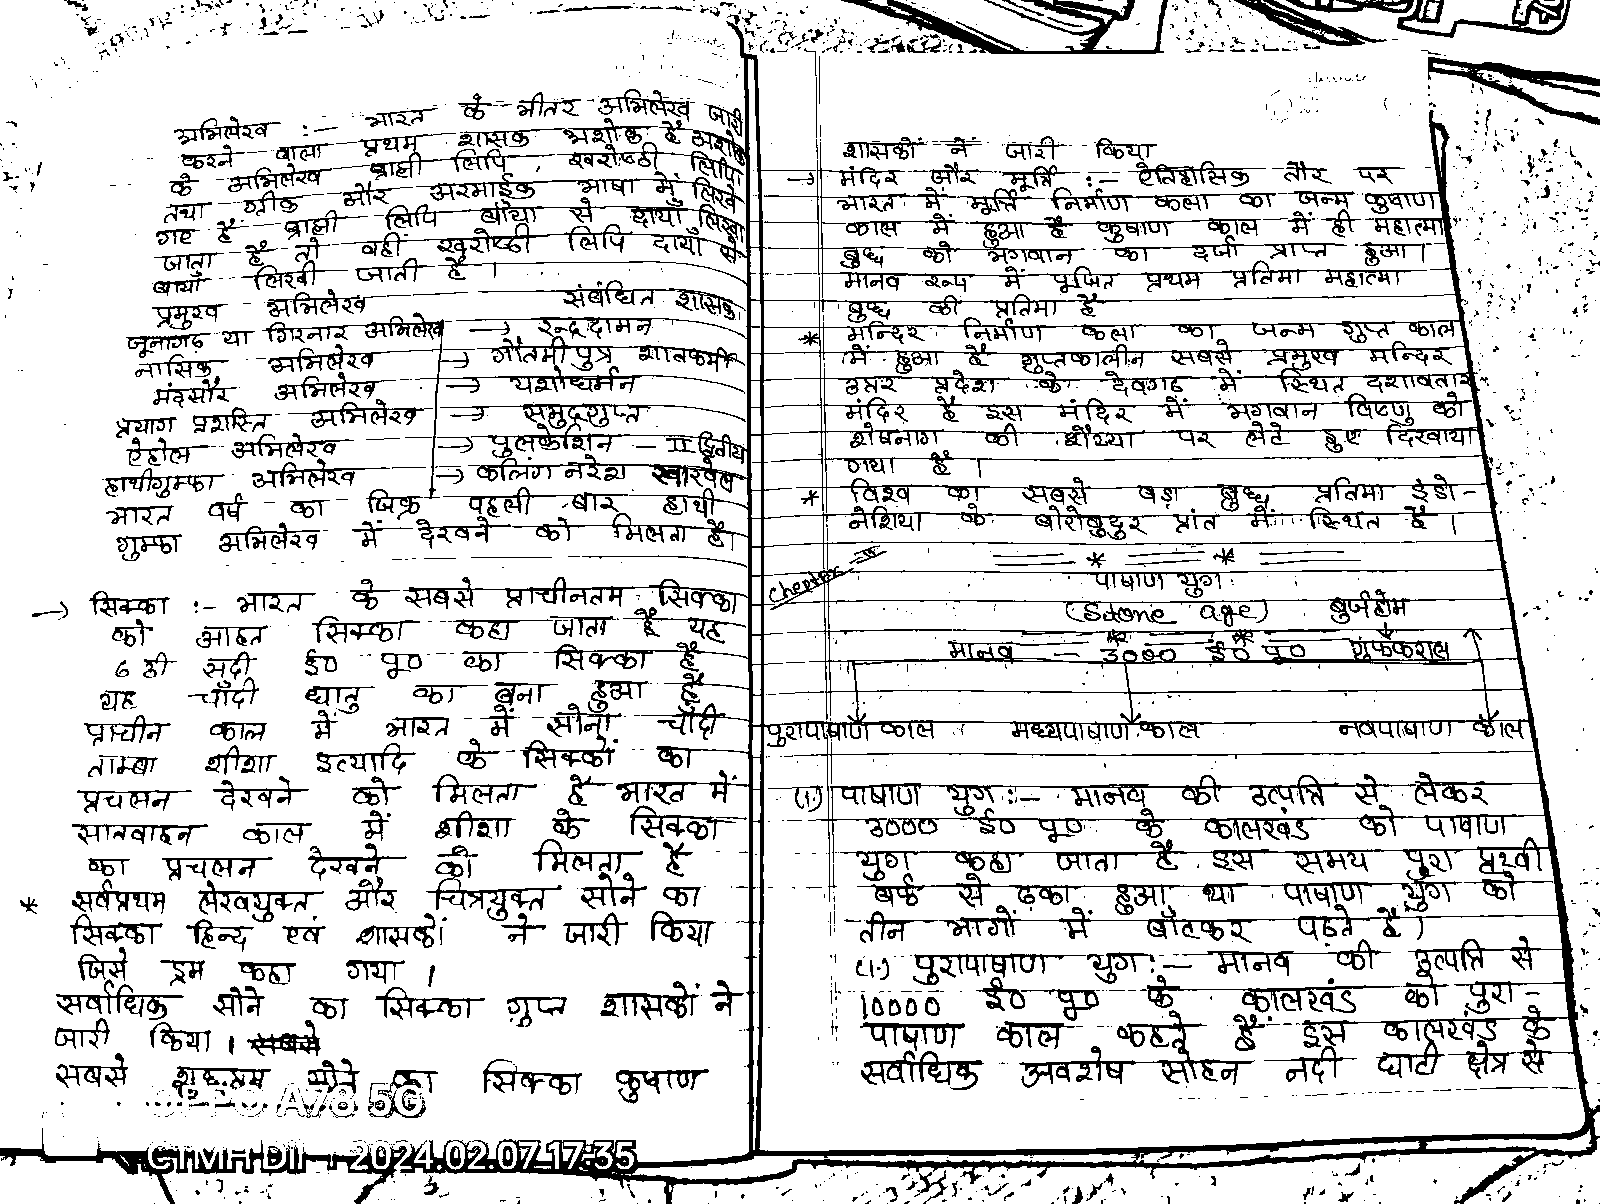 अभिलेख :- भारत के भीतर अभिलेख जारी
करने वाला प्रथम शासक अशोक है अशोक
के अभिलेख ब्राह्मी लिपि, खरोष्ठी लिपि
तथा ग्रीक और अरमाईक भाषा में लिखे
गए है ब्राह्मी लिपि बांया से दायाँ लिखा
जाता है तो वहीं खरोष्ठी लिपि दायाँ से
बायाँ लिखी जाती है ।
प्रमुख अभिलेख संबंधित शासक
जूनागढ़ या गिरनार अभिलेख → रुद्रदामन
नासिक अभिलेख → गौतमी पुत्र शातकर्मी
मंदसौर अभिलेख → यशोधर्मन
प्रयाग प्रशस्ति अभिलेख → समुद्रगुप्त
ऐहोल अभिलेख → पुलकेशिन - II द्वितीय
हाथीगुम्फा अभिलेख → कलिंग नरेश खारवेल
भारत वर्ष का जिक्र पहली बार हाथी
गुम्फा अभिलेख में देखने को मिलता है।
→ सिक्का :- भारत के सबसे प्राचीनतम सिक्का
को आहत सिक्का कहा जाता है यह
6 ठी सदी ई० पू० का सिक्का है
यह चाँदी धातु का बना हुआ है
प्राचीन काल में भारत में सोना चाँदी
ताम्बा शीशा इत्यादि के सिक्कों का
प्रचलन देखने को मिलता है भारत में
सातवाहन काल में शीशा के सिक्का
का प्रचलन देखने को मिलता है
* सर्वप्रथम लेखयुक्त और चित्रयुक्त सोने का
सिक्का हिन्द एवं शासकों ने जारी किया
जिसे ड्रम कहा गया ।
सर्वाधिक सोने का सिक्का गुप्त शासकों ने
जारी किया । सबसे
सबसे शुद्धतम सोने का सिक्का कुषाण
OPPO A78 5G
2024.02.07 17:35
शासकों नें जारी किया
→ मंदिर और मूर्ति :- ऐतिहासिक तौर पर
भारत में मूर्ति निर्माण कला का जन्म कुषाण
काल में हुआ है कुषाण काल में ही महात्मा
बुद्ध को भगवान का दर्जा प्राप्त हुआ।
मानव रूप में पूजित प्रथम प्रतिमा महात्मा
बुद्ध की प्रतिमा है
* मन्दिर निर्माण कला का जन्म गुप्त काल
में हुआ है गुप्तकालीन सबसे प्रमुख मन्दिर
उत्तर प्रदेश के देवगढ़ में स्थित दशावतार
मंदिर है इस मंदिर में भगवान विष्णु को
शेषनाग की शैय्या पर लेटे हुए दिखाया
गया है ।
* विश्व का सबसे बड़ा बुद्ध प्रतिमा इंडो-
नेशिया के बोरोबुदुर प्रांत में स्थित है ।
Chapter - II
पाषाण युग
(Stone age) बुर्जहोम
मानव - 3000 ई० पू० गुफकराल
पुरापाषाण काल मध्यपाषाण काल नवपाषाण काल
(1) पाषाण युग :- मानव की उत्पत्ति से लेकर
3000 ई० पू० के कालखंड को पाषाण
युग कहा जाता है इस समय पुरा पृथ्वी
बर्फ से ढ़का हुआ था पाषाण युग को
तीन भागों में बाँटकर पढ़ते है।
(1.) पुरापाषाण युग :- मानव की उत्पत्ति से
10000 ई० पू० के कालखंड को पुरा-
पाषाण काल कहते हैं इस कालखंड के
सर्वाधिक अवशेष सोहन नदी घाटी क्षेत्र से